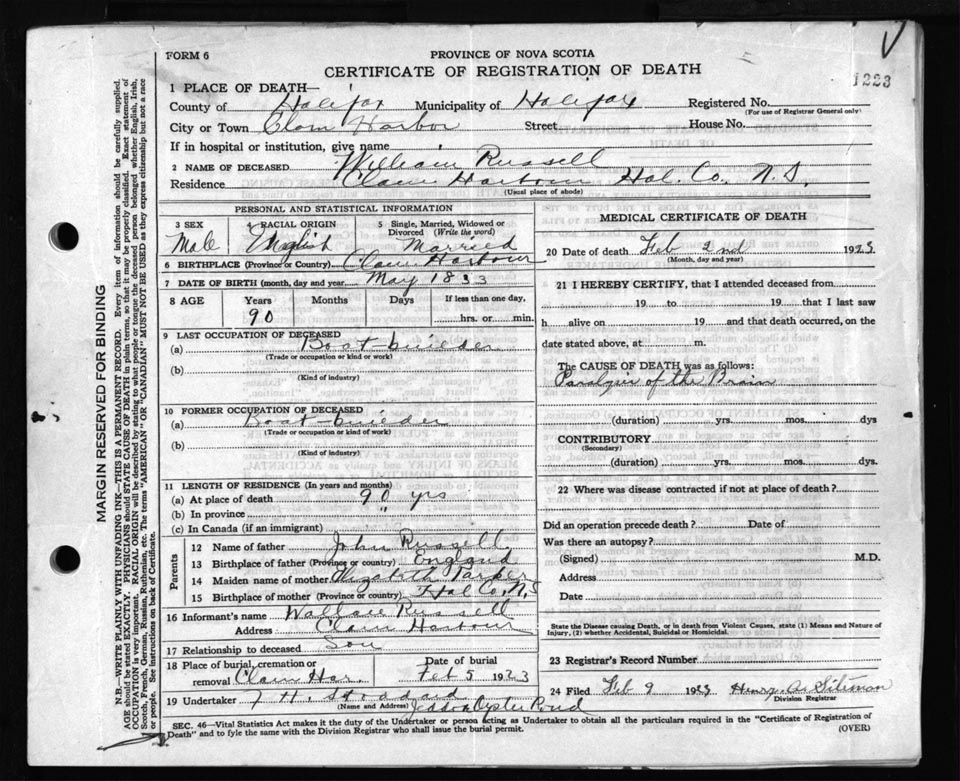 1223
FORM 6
PROVINCE OF NOVA SCOTIA
CERTIFICATE OF REGISTRATION OF DEATH
1 PLACE OF DEATH—
County of Halifax Municipality of Halifax Registered No.
(For use of Registrar General only)
City or Town Clam Harbor Street House No.
If in hospital or institution, give name
2 NAME OF DECEASED William Russell
Residence Clam Harbour Hal. Co. N.S.
(Usual place of abode)
PERSONAL AND STATISTICAL INFORMATION
3 SEX Male
4 RACIAL ORIGIN English
5 Single, Married, Widowed or Divorced (Write the word) Married
6 BIRTHPLACE (Province or Country) Clam Harbour
7 DATE OF BIRTH (month, day and year) May 1833
8 AGE Years Months Days If less than one day,
90 hrs. or min.
9 LAST OCCUPATION OF DECEASED
(a) Boat-builder
(Trade or occupation or kind or work)
(b)
(Kind of industry)
10 FORMER OCCUPATION OF DECEASED
(a) Boat-builder
(Trade or occupation or kind of work)
(b)
(Kind of industry)
11 LENGTH OF RESIDENCE (In years and months)
(a) At place of death 90 yrs
(b) In province "
(c) In Canada (if an immigrant)
Parents
12 Name of father John Russell
13 Birthplace of father (Province or Country) England
14 Maiden name of mother Elizabeth Parker
15 Birthplace of mother (Province or country) Hal Co. N.S
16 Informant's name Wallace Russell
Address Clam Harbour
17 Relationship to deceased Son
18 Place of burial, cremation or removal Clam Har. Date of burial Feb 5 1923
19 Undertaker J H. Stoddard
(Name and Address) Jeddore Oyster Pond
MEDICAL CERTIFICATE OF DEATH
20 Date of death Feb 2nd 1923
(Month, day and year)
21 I HEREBY CERTIFY, that I attended deceased from
19 to 19 that I last saw
h alive on 19 and that death occurred, on
date stated above, at m.
The CAUSE OF DEATH was as follows:
Paralysis of the Brain
(duration) yrs. mos. dys
CONTRIBUTORY
(Secondary)
(duration) yrs. mos. dys.
22 Where was disease contracted if not at place of death?
Did an operation precede death? Date of
Was there an autopsy?
(Signed) M.D.
Address
Date
State the Disease causing Death, or in death from Violent Causes, state (1) Means and Nature of
Injury, (2) whether Accidental, Suicidal or Homicidal.
23 Registrar's Record Number
24 Filed Feb 9 1923 Henry A. Siteman
Division Registrar
SEC. 46—Vital Statistics Act makes it the duty of the Undertaker or person acting as Undertaker to obtain all the particulars required in the "Certificate of Registration of
Death" and to fyle the same with the Division Registrar who shall issue the burial permit.
(OVER)
MARGIN RESERVED FOR BINDING
N.B.—WRITE PLAINLY WITH UNFADING INK—THIS IS A PERMANENT RECORD. Every item of information should be carefully supplied.
AGE should be stated EXACTLY. PHYSICIANS should STATE CAUSE OF DEATH in plain terms, so that it may be properly classified. Exact statement of
OCCUPATION is very important. RACIAL ORIGIN will be described by stating to what people or tongue the deceased person belonged whether English, Irish,
Scotch, French, German, Russian, Ruthenian, etc. The terms "AMERICAN" OR "CANADIAN" MUST NOT BE USED as they express citizenship but not a race
or people. See instructions on back of Certificate.